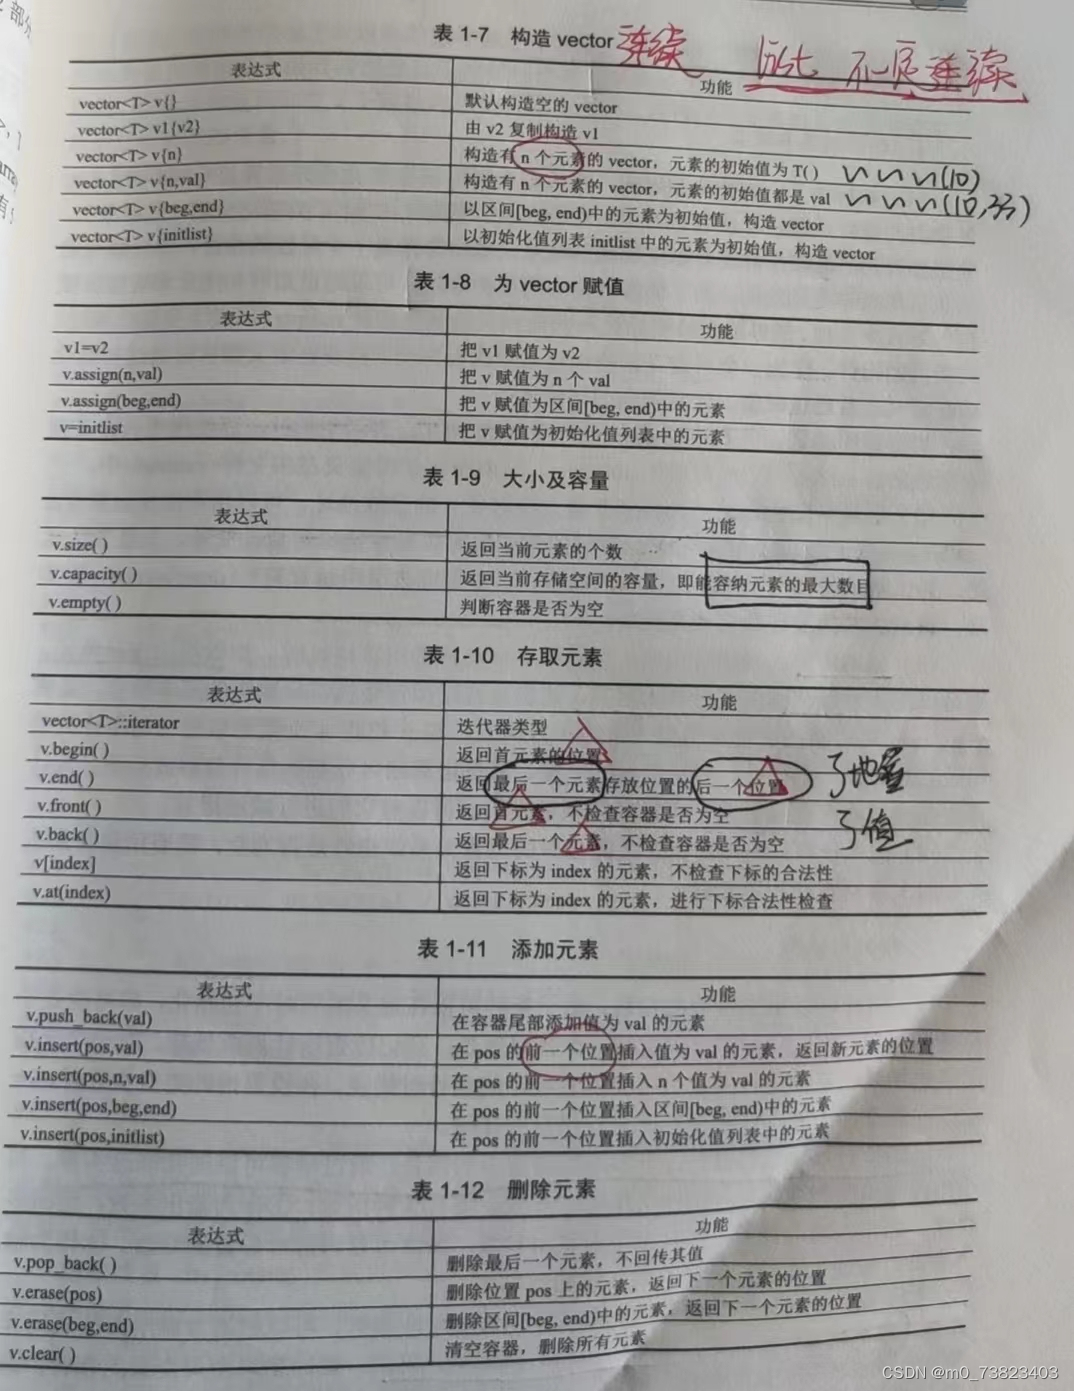 部分
表 1-7 构造 vector 连续 list 不一定连续
表达式 功能
vector<T> v{} 默认构造空的 vector
vector<T> v1{v2} 由 v2 复制构造 v1
vector<T> v{n} 构造有 n 个元素的 vector，元素的初始值为 T() (10)
vector<T> v{n,val} 构造有 n 个元素的 vector，元素的初始值都是 val (10,33)
vector<T> v{beg,end} 以区间[beg, end)中的元素为初始值，构造 vector
vector<T> v{initlist} 以初始化值列表 initlist 中的元素为初始值，构造 vector
表 1-8 为 vector 赋值
表达式 功能
v1=v2 把 v1 赋值为 v2
v.assign(n,val) 把 v 赋值为 n 个 val
v.assign(beg,end) 把 v 赋值为区间[beg, end)中的元素
v=initlist 把 v 赋值为初始化值列表中的元素
表 1-9 大小及容量
表达式 功能
v.size( ) 返回当前元素的个数
v.capacity( ) 返回当前存储空间的容量，即能容纳元素的最大数目
v.empty( ) 判断容器是否为空
表 1-10 存取元素
表达式 功能
vector<T>::iterator 迭代器类型
v.begin( ) 返回首元素的位置
v.end( ) 返回最后一个元素存放位置的后一个位置
v.front( ) 返回首元素，不检查容器是否为空
v.back( ) 返回最后一个元素，不检查容器是否为空 值
v[index] 返回下标为 index 的元素，不检查下标的合法性
v.at(index) 返回下标为 index 的元素，进行下标合法性检查
表 1-11 添加元素
表达式 功能
v.push_back(val) 在容器尾部添加值为 val 的元素
v.insert(pos,val) 在 pos 的前一个位置插入值为 val 的元素，返回新元素的位置
v.insert(pos,n,val) 在 pos 的前一个位置插入 n 个值为 val 的元素
v.insert(pos,beg,end) 在 pos 的前一个位置插入区间[beg, end)中的元素
v.insert(pos,initlist) 在 pos 的前一个位置插入初始化值列表中的元素
表 1-12 删除元素
表达式 功能
v.pop_back( ) 删除最后一个元素，不回传其值
v.erase(pos) 删除位置 pos 上的元素，返回下一个元素的位置
v.erase(beg,end) 删除区间[beg, end)中的元素，返回下一个元素的位置
v.clear( ) 清空容器，删除所有元素
CSDN @m0_73823403